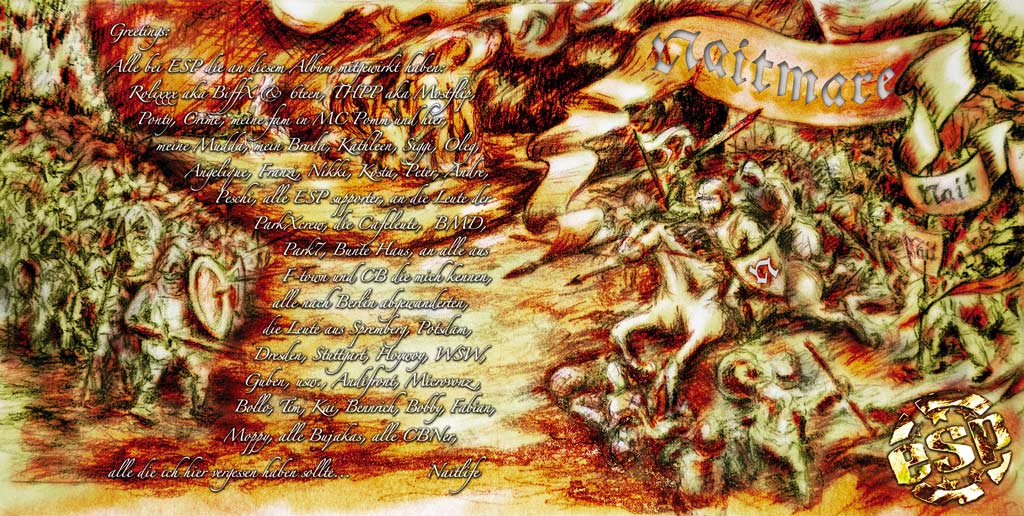 Greetings:
Alle bei ESP die an diesem Album mitgewirkt haben:
Rolixxx aka BiffX & 6teen, THPP aka Mostflip,
Ponty, Crime, meine fam in MC Pomm und hier,
meine Mudda, mein Bruda, Kathleen, Siggi, Oleg,
Angelique, Franzi, Nikki, Kosta, Peter, Andre,
Peschi, alle ESP supporter, an die Leute der
ParkXcrew, die Cafeleute, BMD,
Park7, Bunte Haus, an alle aus
F-town und CB die mich kennen,
alle nach Berlin abgewanderten,
die Leute aus Spremberg, Potsdam,
Dresden, Stuttgart, Hoywoy, WSW,
Guben, usw., Andifront, Microvonz,
Bollo, Tim, Kai, Bennrich, Bobby, Fabian,
Moppy, alle Bujakas, alle CBNer,
alle die ich hier vergessen haben sollte... Naitlife
Naitmare
Nait
N
eSP